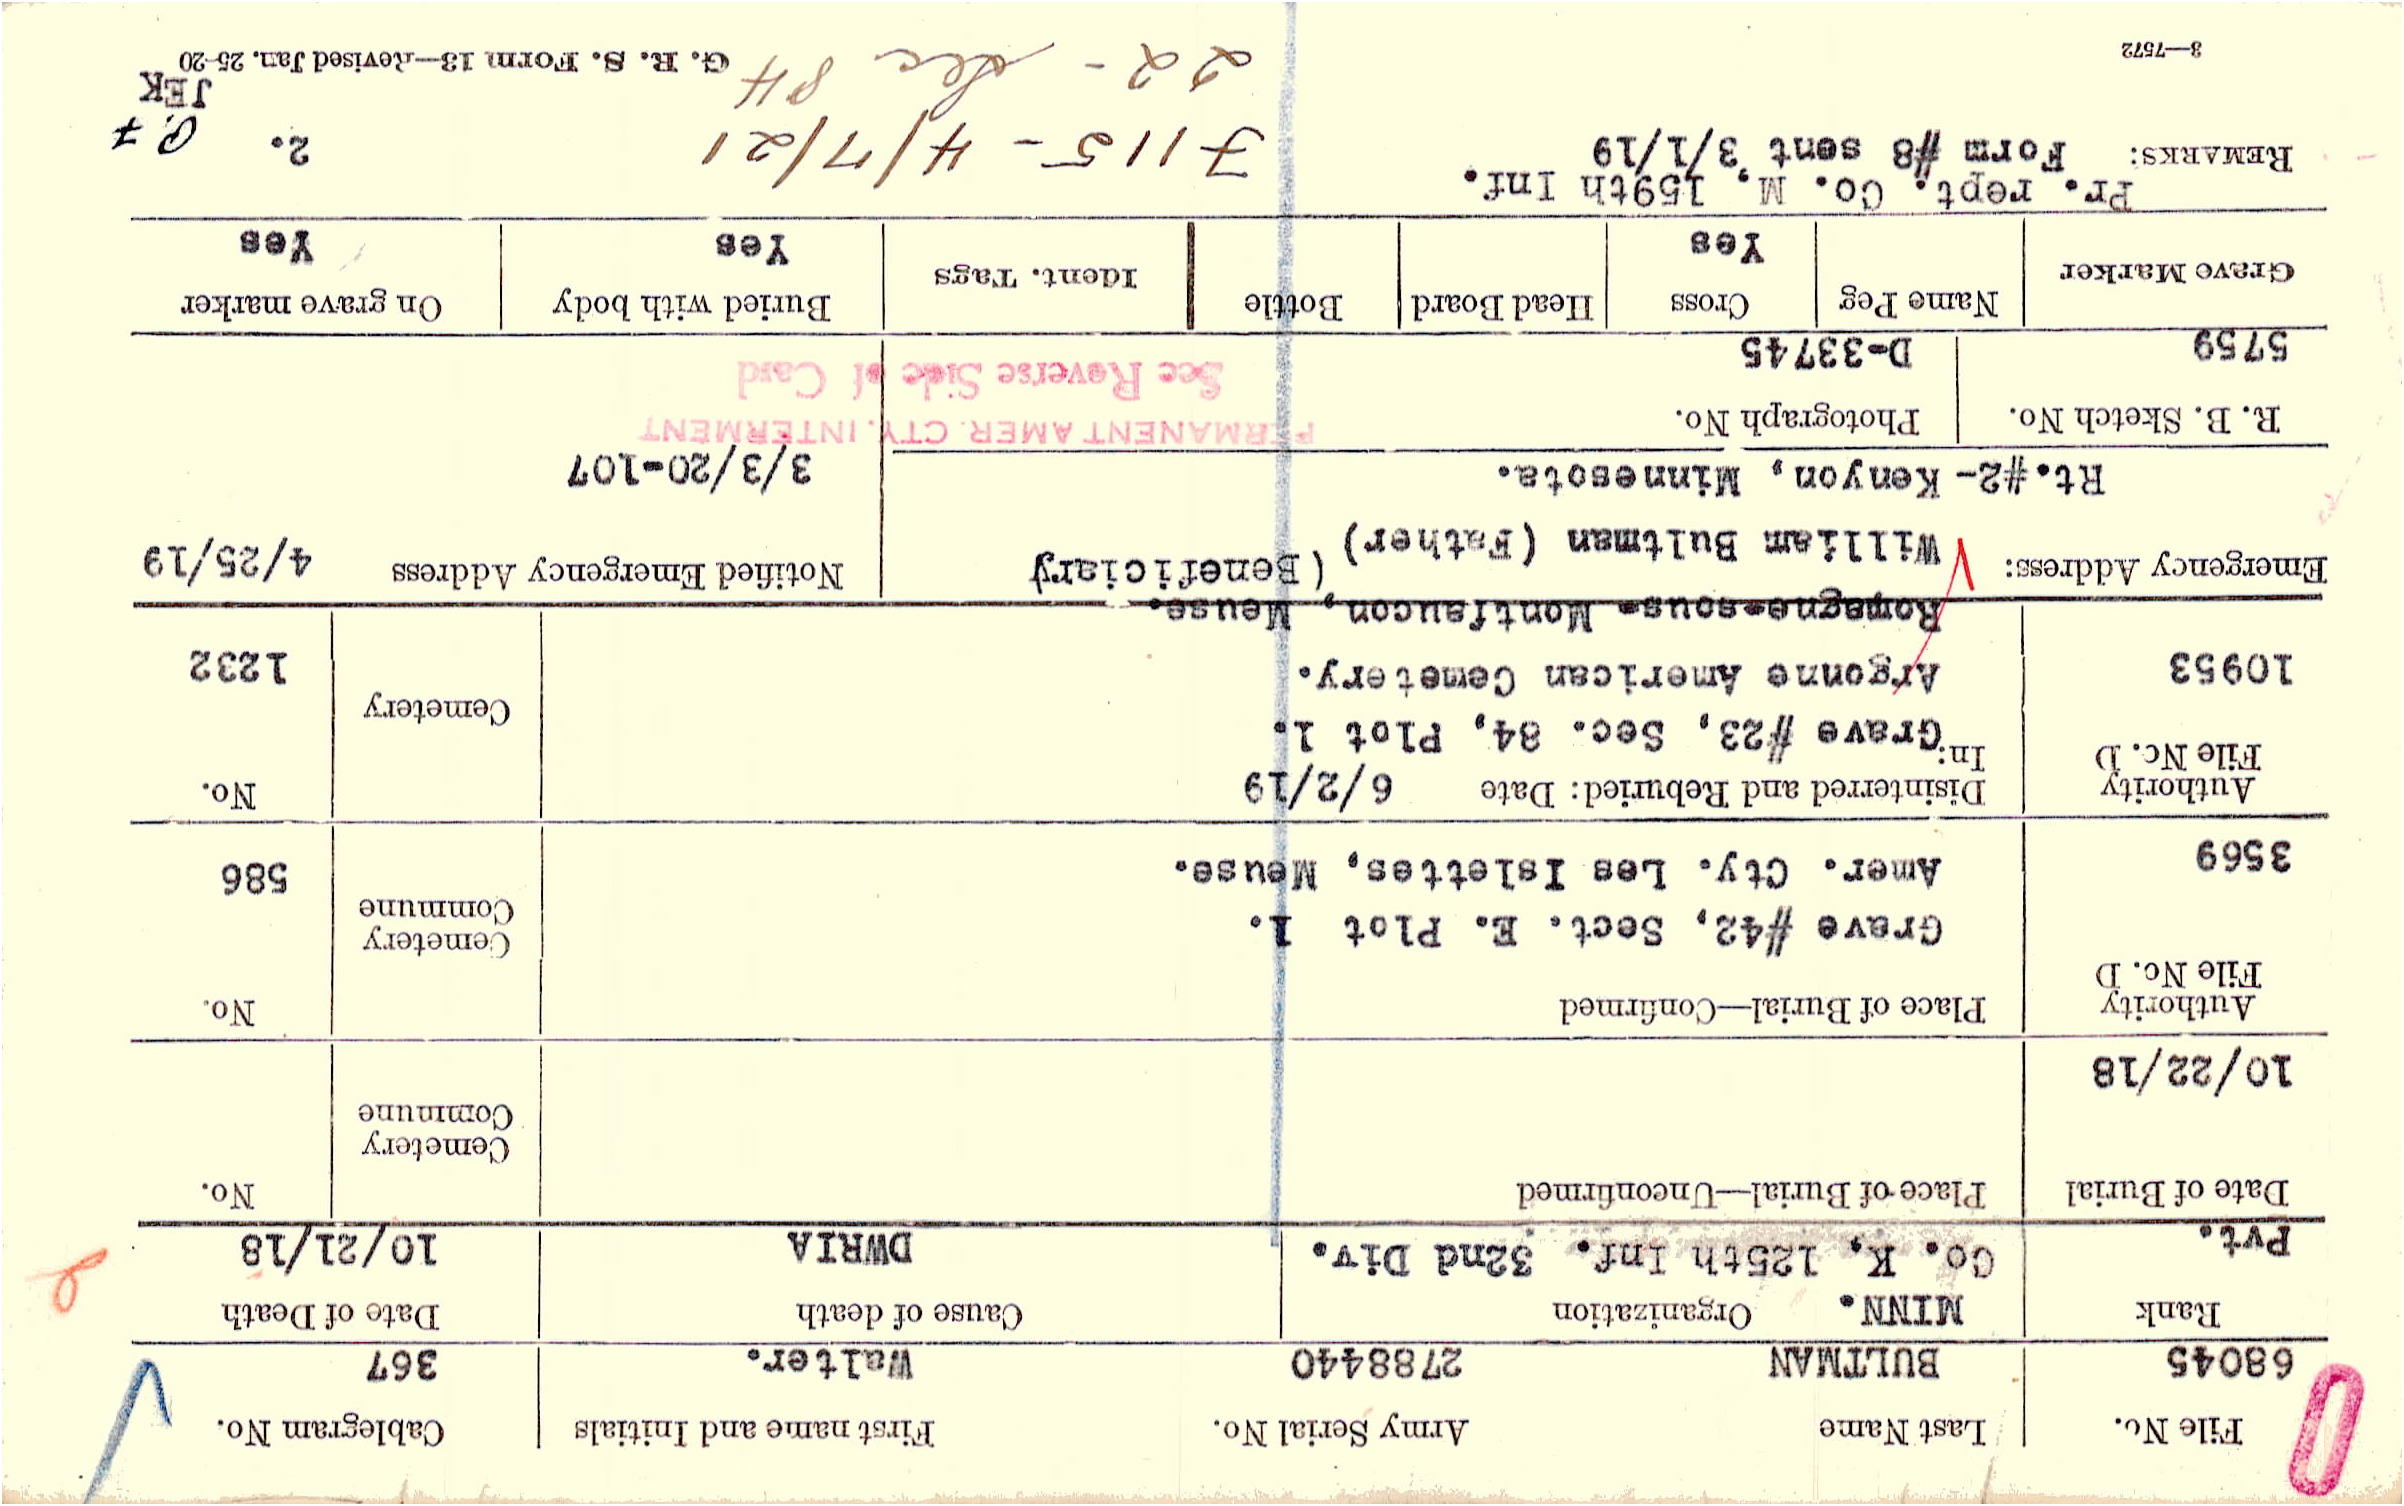 File No. Last Name Army Serial No. First name and Initials Cablegram No.
68045 BULTMAN 2788440 Walter. 367
Rank MINN. Organization Cause of death Date of Death
Pvt. Co. K, 125th Inf. 32nd Div. DWRIA 10/21/18
Date of Burial Place of Burial—Unconfirmed Cemetery Commune No.
10/22/18
Authority File No. D Place of Burial—Confirmed Cemetery Commune No.
Grave #42, Sect. E. Plot 1.
3569 Amer. Cty. Les Islettes, Meuse. 586
Authority File No. D Disinterred and Reburied: Date 6/2/19 Cemetery No.
In: Grave #23, Sec. 84, Plot 1.
10953 Argonne American Cemetery. 1232
Romagne-sous- Montfaucon, Meuse.
Emergency Address: William Bultman (Father) (Beneficiary Notified Emergency Address 4/25/19
Rt.#2- Kenyon, Minnesota. 3/3/20-107
PERMANENT AMER. CTY. INTERMENT
R. B. Sketch No. Photograph No. See Reverse Side of Card
5759 D-33745
Grave Marker Name Peg Cross Head Board Bottle Ident. Tags Buried with body On grave marker
Yes Yes Yes
Pr. rept. Co. M, 159th Inf.
REMARKS: Form #8 sent 3/1/19 7115-4/7/21 2.
22 - Sec 84 JEK
3—7572 G. R. S. Form 13—Revised Jan. 25-20